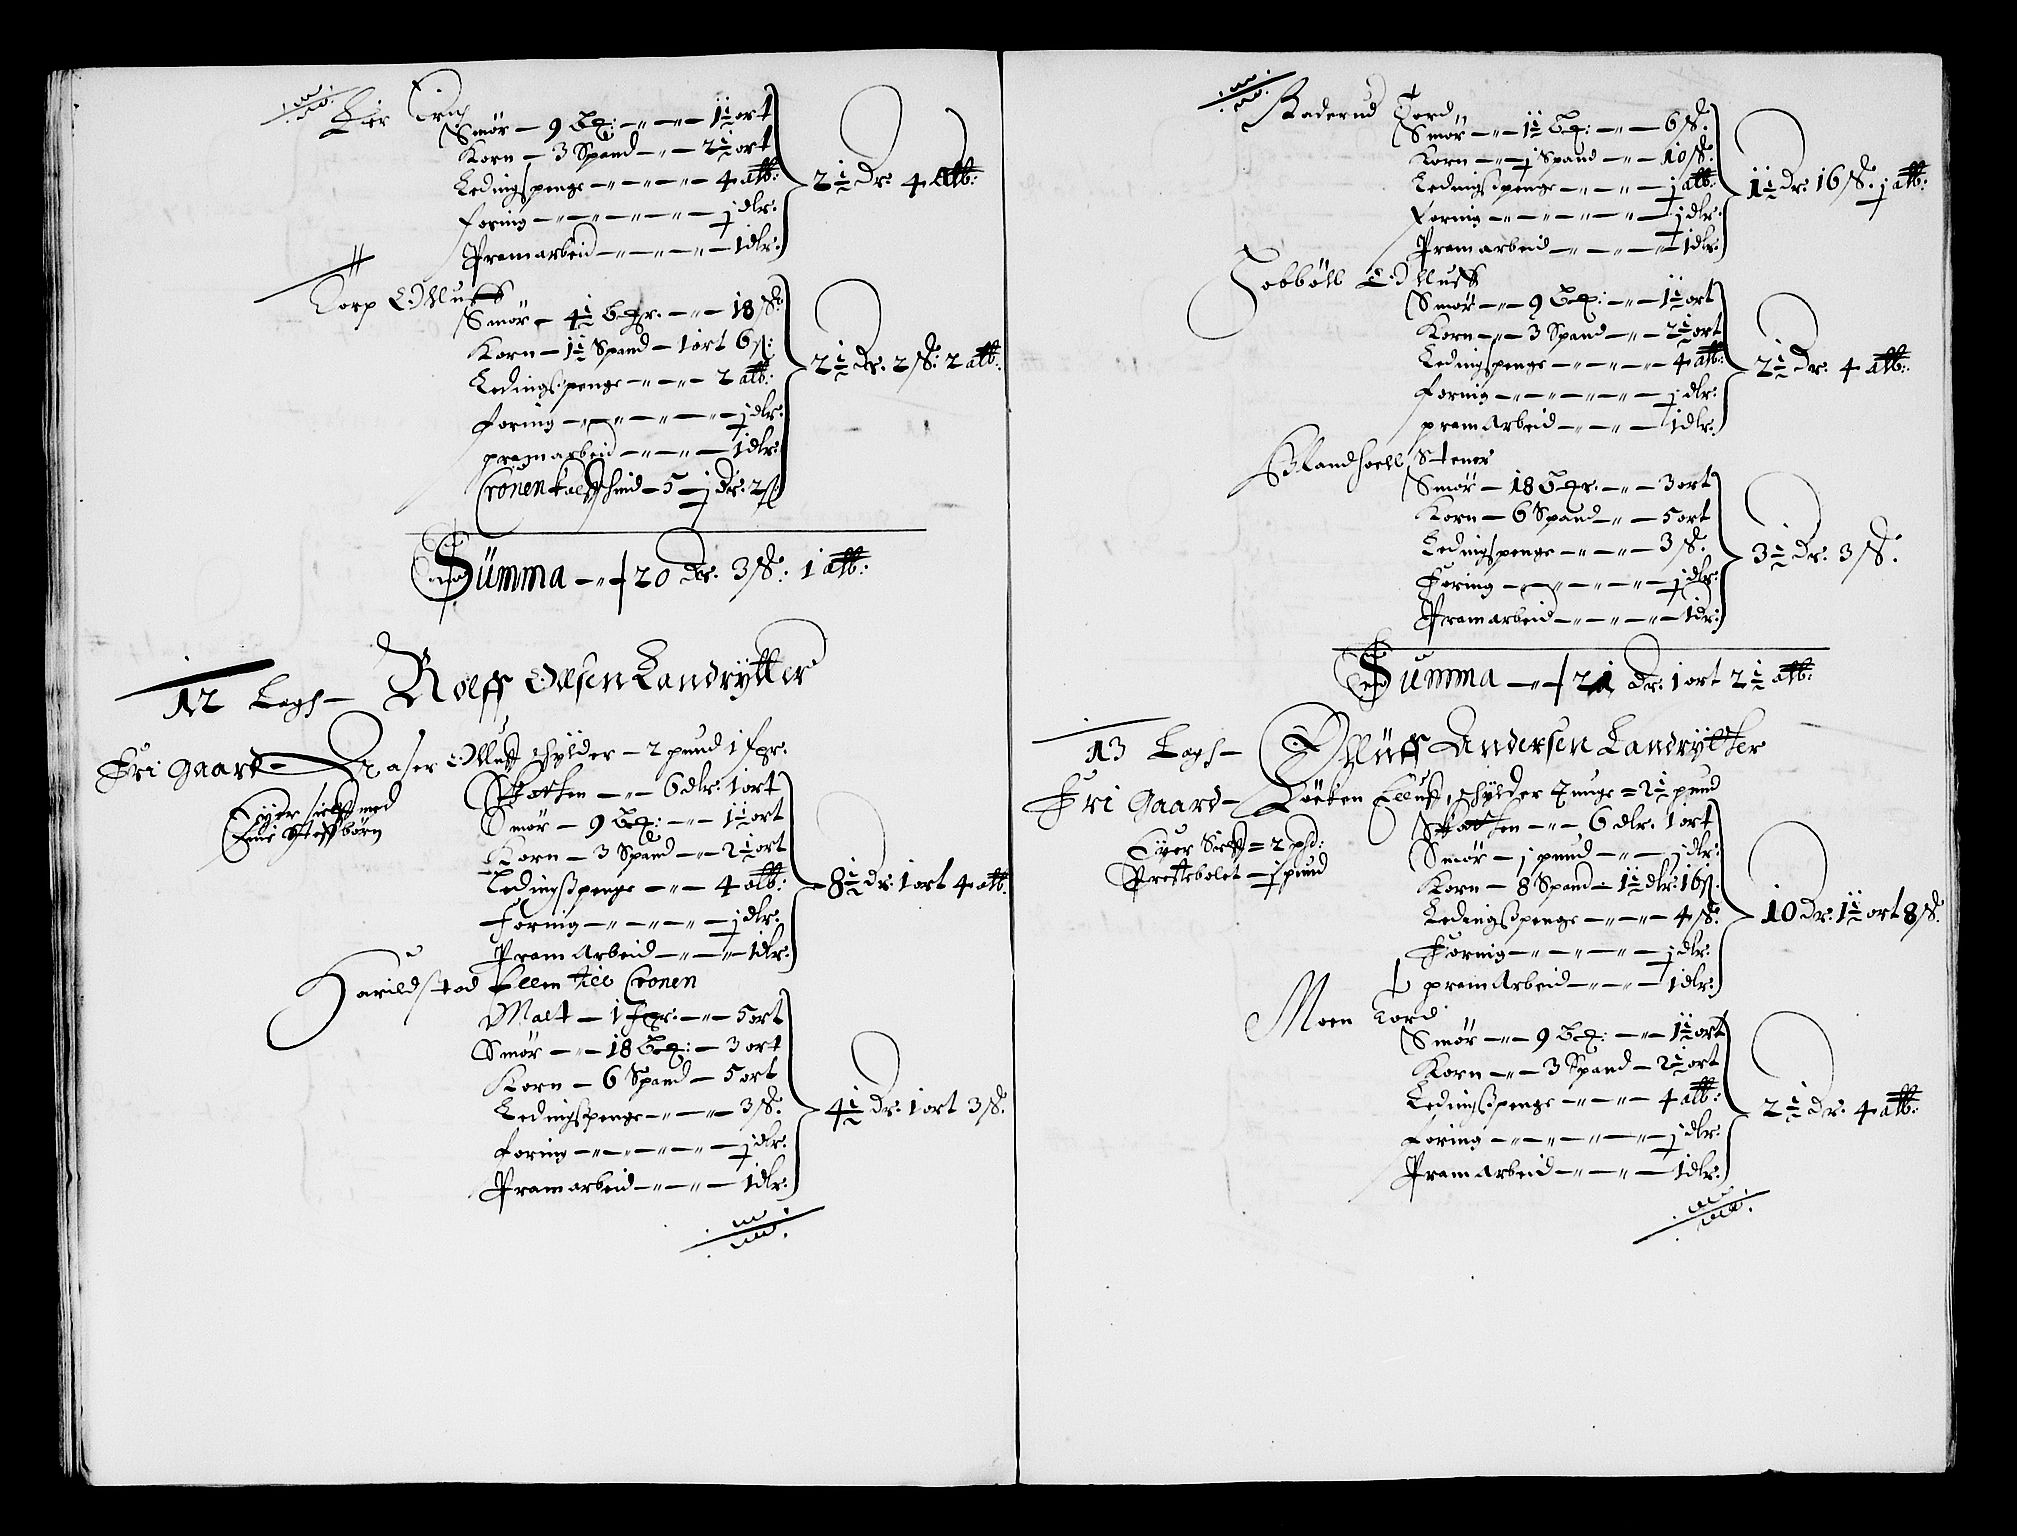 Lier Erich
Smør — 9 — 1½ ort
Korn — 3 Spand — 2½ ort
Ledingspenge — 4 alb:
Foring — ½ dlr:
Pramarbeid — 1 dlr:
2½ Dr. 4 alb:
Torp Olluff
Smør — 4½ — 18 ß.
Korn — 1½ Spand — 1 ort 6 ß:
Ledingspenge — 2 alb:
Foring — ½ dlr:
pramarbeid — 1 dlr:
Cronen — 5 — ½ Dr. 2 ß
2½ Dr. 2 ß: 2 alb:
Summa — 20 Dr. 3 ß: 1 alb:
12 Legh — Rolff Olsen Landrytter
Fri Gaard — Aaser Olluff schylder — 2 pund 1 fgr:
Eyer sielff med
sine Steffbörn
Skatten — 6 dlr. 1 ort
Smør — 9 — 1½ ort
Korn — 3 Spand — 2½ ort
Ledingspenge — 4 alb:
Foring — ½ dlr:
Pram Arbeid — 1 dlr:
8½ Dr: 1 ort 4 alb:
Harildstad Ellen till Cronen
Malt — 1 fgr: — 5 ort
Smør — 18 — 3 ort
Korn — 6 Spand — 5 ort
Ledingspenge — 3 ß.
Foring — ½ dlr:
Pramarbeid — 1 dlr:
4½ Dr: 1 ort 3 ß.
Raderud Tord
Smør — 1½ — 6 ß.
Korn — ½ Spand — 10 ß.
Ledingspenge — ½ alb:
Foring — ½ dlr:
Pramarbeid — 1 dlr:
1½ Dr: 16 ß. ½ alb:
Tobböll Olluff
Smør — 9 — 1½ ort
Korn — 3 Spand — 2½ ort
Ledingspenge — 4 alb:
Foring — ½ dlr:
pramArbeid — 1 dlr:
2½ Dr: 4 alb:
Stener
Smør — 18 — 3 ort
Korn — 6 Spand — 5 ort
Ledingspenge — 3 ß.
Foring — ½ dlr:
Pramarbeid — 1 dr:
3½ Dr: 3 ß.
Summa — 21 Dr: 1 ort 2½ alb:
13 Legh — Olluff Andersen Landrytter
Fri Gaard — Löeken schylder = 2½ pund
Eyer Sielff = 2 pd:
Prestebolet — ½ pund
Skatten — 6 dlr. 1 ort
Smør — ½ pund — ½ dlr:
Korn — 8 Spand — 1½ dlr: 16 ß.
Ledingspenge — 4 ß.
Foring — ½ dlr:
pramArbeid — 1 dlr:
10 Dr: 1½ ort 8 ß.
Moen Tord
Smør — 9 — 1½ ort
Korn — 3 Spand — 2½ ort
Ledingspenge — 4 alb:
Foring — ½ dlr:
PramArbeid — 1 dlr:
2½ Dr. 4 alb: